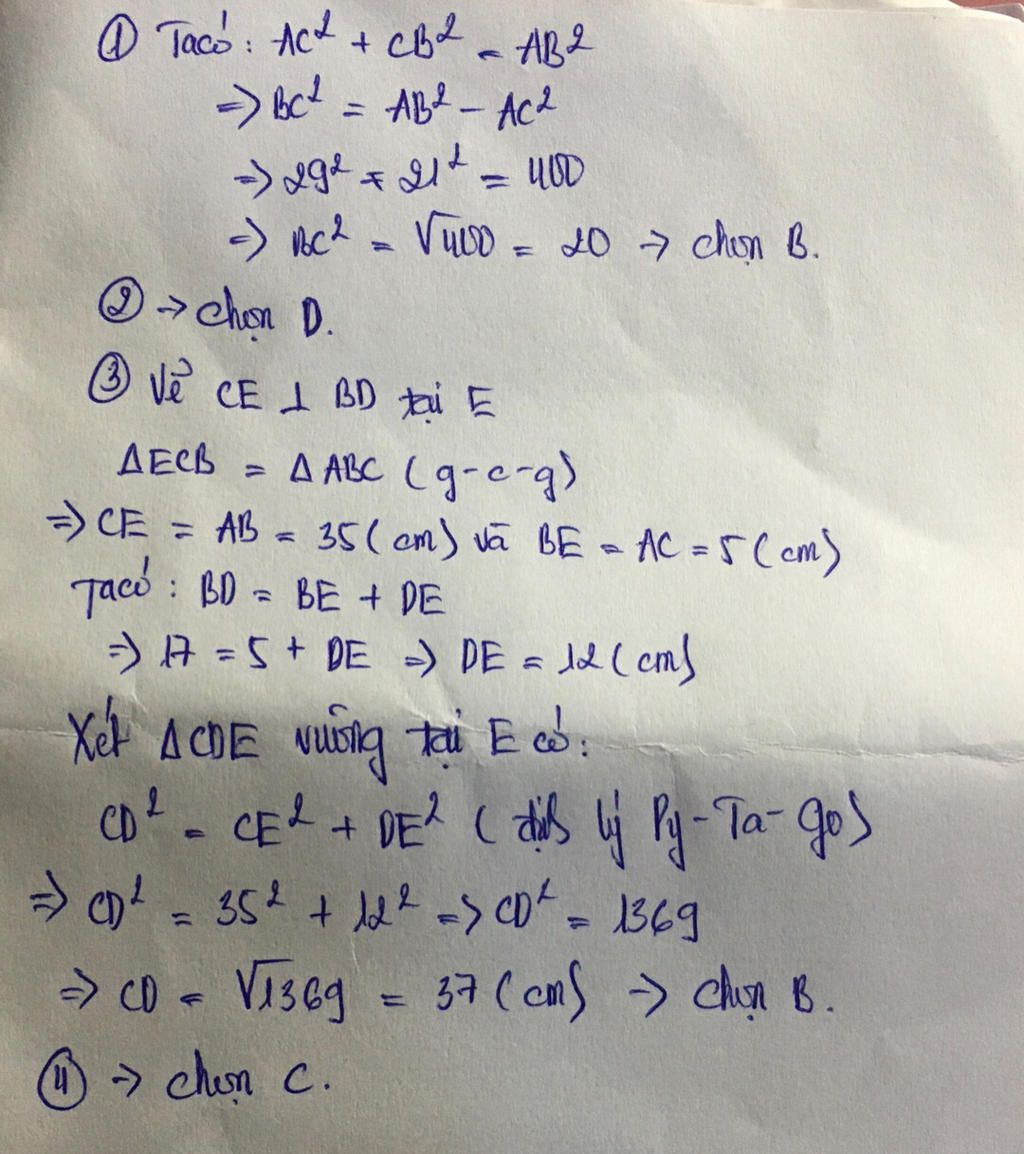 ① Ta có: AC² + CB² = AB²
=> BC² = AB² - AC²
=> 29² - 21² = 400
=> BC² = √400 = 20 → chọn B.
② → chọn D.
③ Vẽ CE ⊥ BD tại E
ΔECB = ΔABC (g-c-g)
=> CE = AB = 35 (cm) và BE = AC = 5 (cm)
Ta có: BD = BE + DE
=> 17 = 5 + DE => DE = 12 (cm)
Xét ΔCDE vuông tại E có:
CD² = CE² + DE² (định lý Py-Ta-go)
=> CD² = 35² + 12² => CD² = 1369
=> CD = √1369 = 37 (cm) → chọn B.
④ → chọn C.